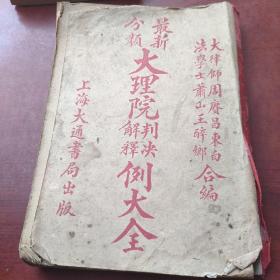 大律師周賡昌東白
法學士蕭山王醉鄉 合編
最新
分類 大理院判決
解釋例大全
上海大通書局出版